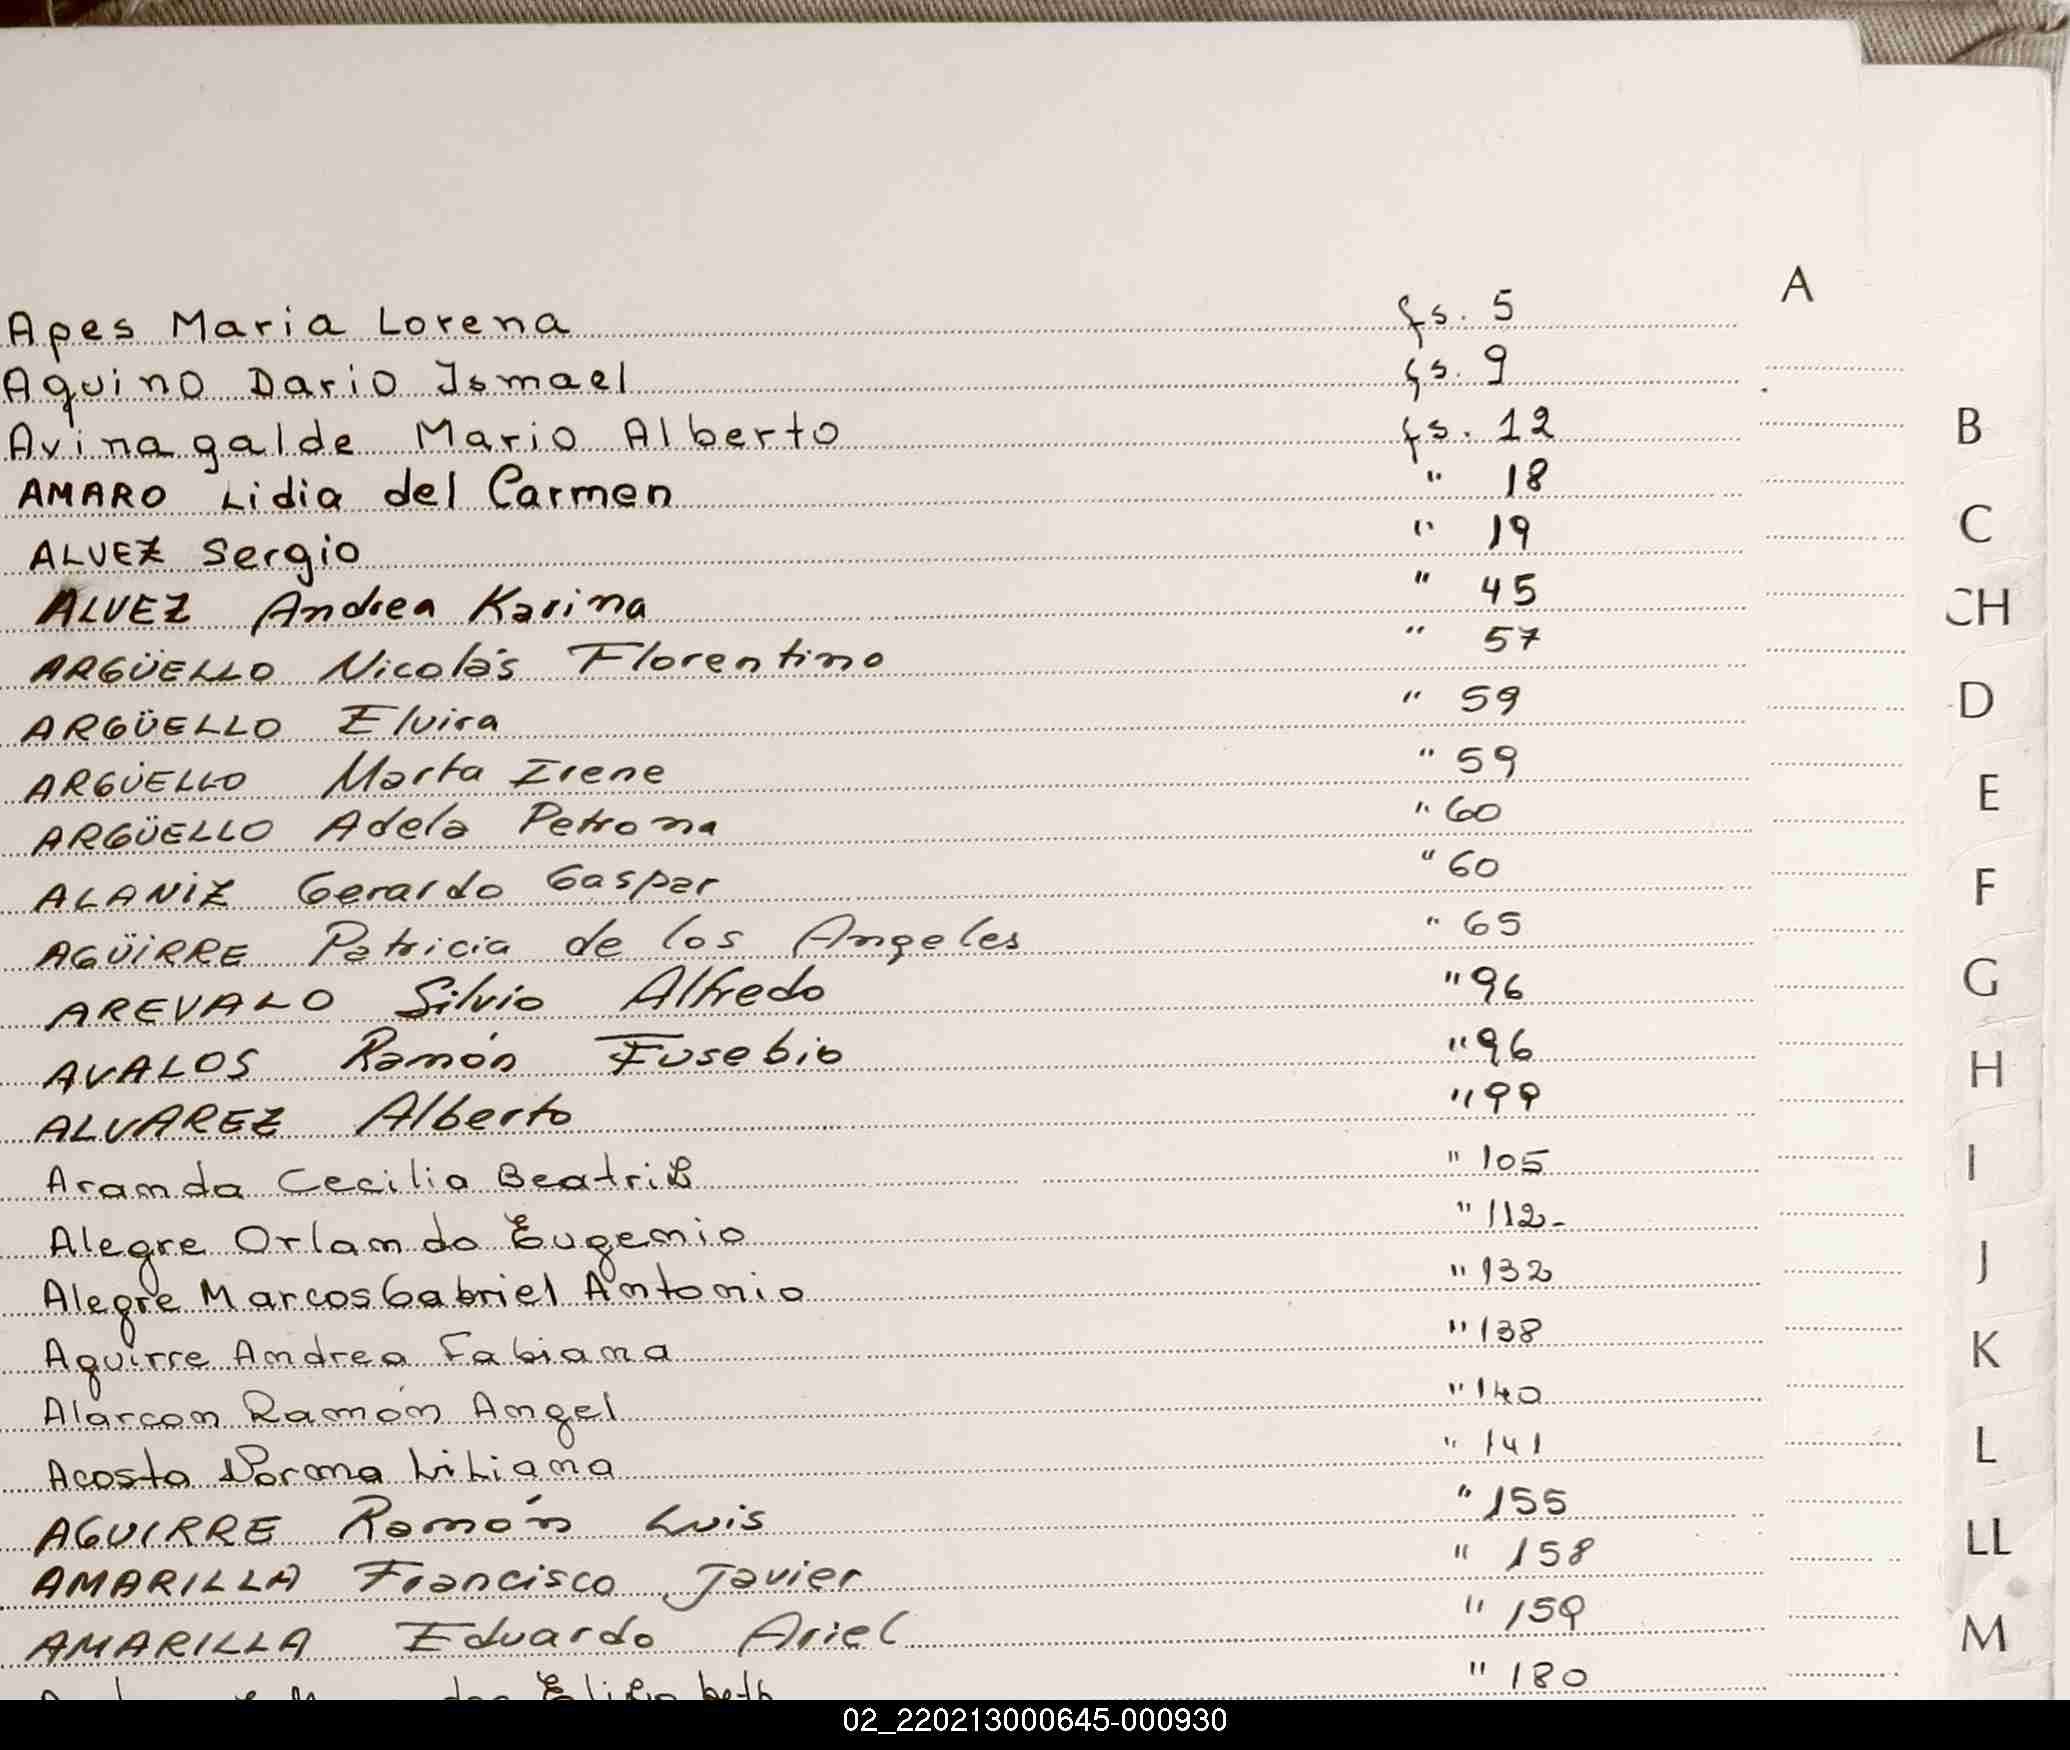 A
Apes Maria Lorena fs. 5
Aquino Dario Ismael fs. 9
Avinagalde Mario Alberto fs. 12
AMARO Lidia del Carmen " 18
ALVEZ Sergio " 19
ALVEZ Andrea Karina " 45
ARGÜELLO Nicolás Florentino " 57
ARGÜELLO Elvira " 59
ARGÜELLO Marta Irene " 59
ARGÜELLO Adela Petrona " 60
ALANIZ Gerardo Gaspar " 60
AGÜIRRE Patricia de los Angeles " 65
AREVALO Silvio Alfredo " 96
AVALOS Ramón Eusebio " 96
ALVAREZ Alberto " 99
Aranda Cecilia Beatriz " 105
Alegre Orlando Eugenio " 112-
Alegre Marcos Gabriel Antonio " 132
Aguirre Andrea Fabiana " 138
Alarcon Ramón Angel " 140
Acosta Norma Liliana " 141
AGUIRRE Ramón Luis " 155
AMARILLA Francisco Javier " 158
AMARILLA Eduardo Ariel " 159
" 180
B
C
CH
D
E
F
G
H
I
J
K
L
LL
M
02_220213000645-000930